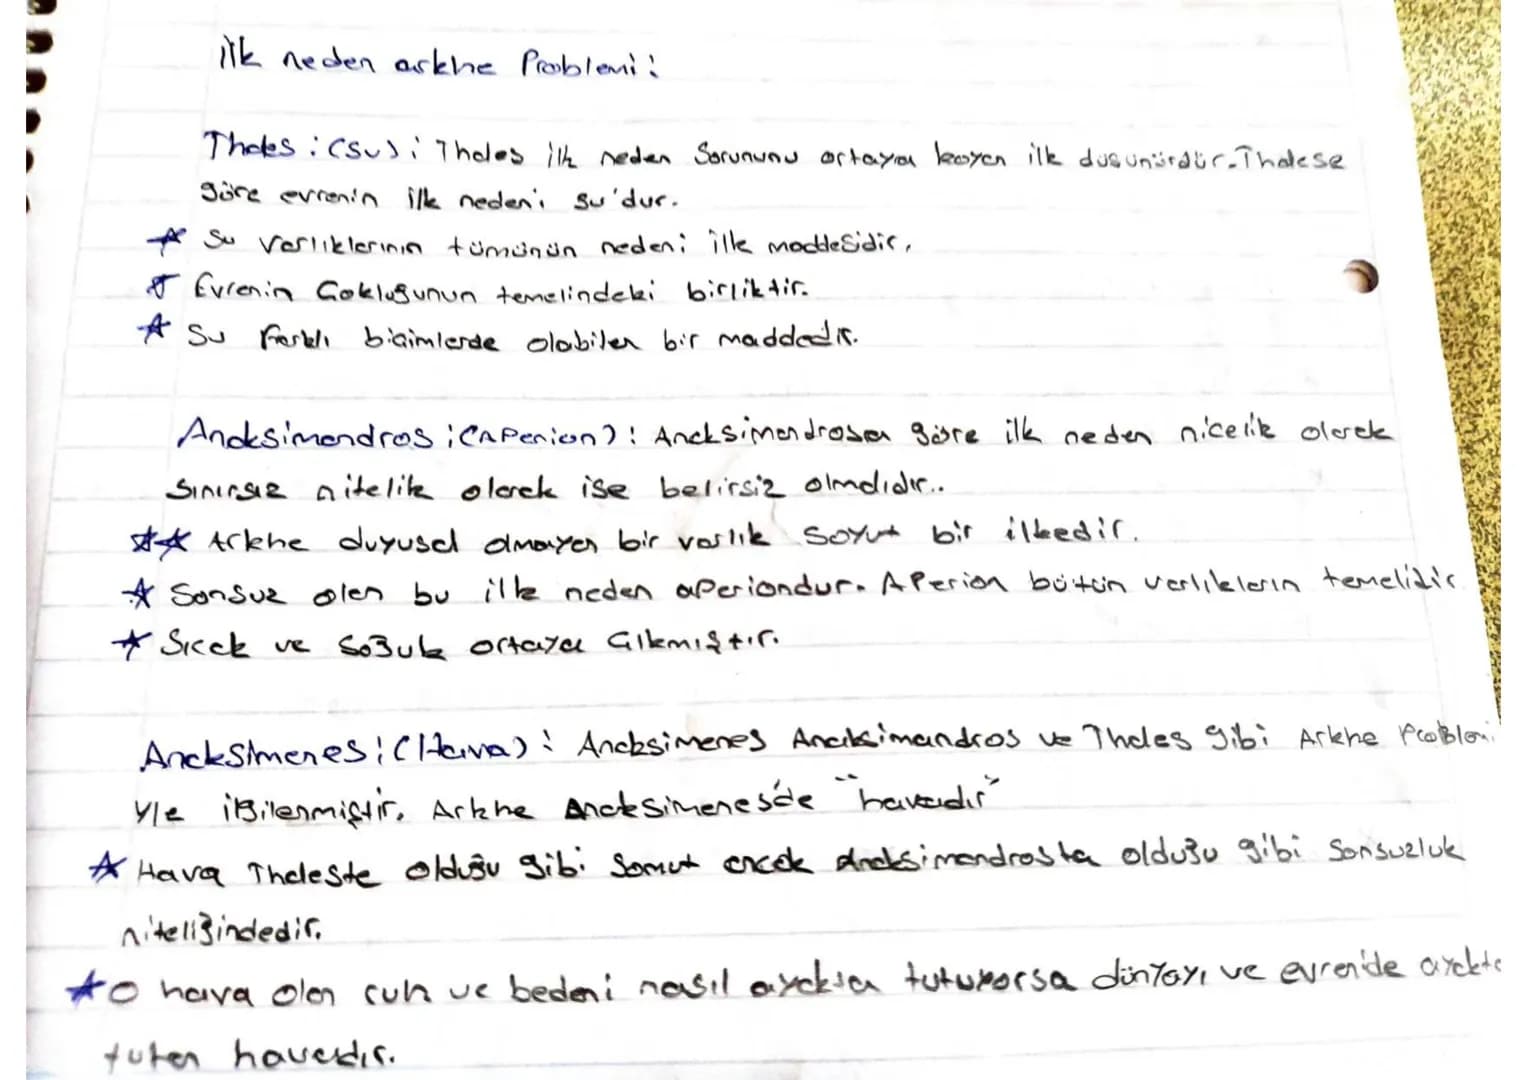 ilk neden arkhe Problemi:
Thales: (Su): Thales ilk neden Sorununu ortaya koyan ilk dusunürdür. Thalese
göre evrenin ilk nedeni su'dur.
★ Su varlıklarının tümünün nedeni ilk maddesidir.
★ Evrenin Çokluğunun temelindeki birliktir.
★ Su farklı biçimlerde olabilen bir maddedir.
Anaksimandros: (Aperion): Anaksimandrosa göre ilk neden nicelik olarak
sınırsız nitelik olarak ise belirsiz olmalıdır..
★★ Arkhe duyusal olmayan bir varlık Soyut bir ilkedir.
★ Sonsuz olan bu ilk neden aperiondur. Aperion bütün varlıkların temelidir
★ Sıcak ve Soğuk ortaya Çıkmıştır.
Anaksimenes: (Hava): Anaksimenes Anaksimandros ve Thales gibi Arkhe Problemi
yle ilgilenmiştir. Arkhe Anaksimenes'de "havadır"
★ Hava Thaleste olduğu gibi Somut ancak Anaksimandrosta olduğu gibi Sonsuzluk
niteliğindedir.
★ O hava olan ruh ve bedeni nasıl ayakta tutuyorsa dünyayı ve evren'de ayakta
tutan havadır.